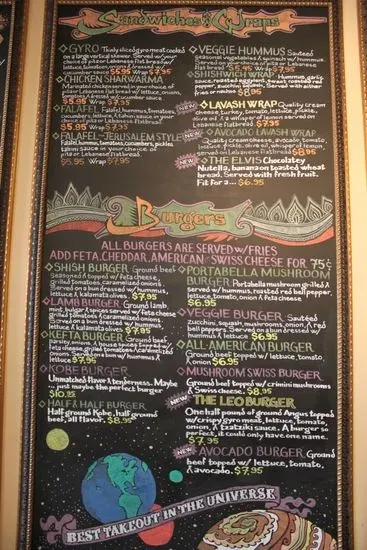 Sandwiches & Wraps
GYRO Thinly sliced gyro meat cooked
on a vertical skewer. Served on your
choice of pita or Lebanese flatbread w/
lettuce, tomatoes, onions & dressed w/
cucumber sauce $5.95 Wrap $7.95
CHICKEN SHARWARMA
Marinated chicken served in your choice of
$5.95 Wrap $7.95
FALAFEL Falafel, hummus, tomatoes,
cucumbers, lettuce, & tahini sauce in your
choice of pita or Lebanese flatbread.
$5.95 Wrap $7.95
FALAFEL JERUSALEM STYLE
Falafel, hummus, tomatoes, cucumbers, pickles,
tahini sauce in your choice of
pita or Lebanese flatbread.
$5.95 Wrap $7.95
VEGGIE HUMMUS Sauteed
seasonal vegetables & spinach w/ hummus.
Served on your choice of pita or Lebanese
flatbread $5.95 Wrap $7.95
SHISHWICH WRAP Hummus, garlic
sauce, roasted steak, meat, roasted red
pepper, zucchini, squash. Served with either
fries or soup $8.95
NEW LAVASH WRAP Quality cream
cheese, turkey, tomato, lettuce, pickle,
and a whisper of lemon served on
Lebanese flatbread $7.95
NEW AVOCADO LAVASH WRAP
Quality cream cheese, avocado, tomato,
lettuce, pickle, olive oil, whisper of lemon,
served on Lebanese flatbread $8.95
NEW THE ELVIS Chocolatey
Nutella, banana on toasted wheat
bread. Served with fresh fruit.
Fit for a... $6.95
Burgers
ALL BURGERS ARE SERVED w/ FRIES
ADD FETA, CHEDDAR, AMERICAN or SWISS CHEESE FOR 75¢
SHISH BURGER Ground beef
Seasoned & topped w/ feta cheese,
grilled tomatoes, caramelized onions.
Served on a bun dressed w/ hummus,
lettuce & kalamata olives. $7.95
LAMB BURGER Ground lamb,
mint, bulgar & spices served w/ feta cheese
grilled tomatoes, caramelized onions.
Served on a bun dressed w/ hummus,
lettuce & kalamata olives $7.95
KEFTA BURGER Ground beef,
parsley, onion, & house spices topped w/
feta cheese, grilled tomatoes & caramelized
onions. Served on a bun w/ hummus &
lettuce $7.95
KOBE BURGER
Unmatched flavor & tenderness. Maybe
is just maybe the perfect burger
$10.95
HALF & HALF BURGER
Half ground Kobe, half ground
beef, all flavor. $8.95
PORTABELLA MUSHROOM
BURGER Portabella mushroom grilled &
served w/ hummus, roasted red bell pepper,
lettuce, tomato, onion & feta cheese
$6.95
VEGGIE BURGER Sauteed
zucchini, squash, mushrooms, onion, & red
bell peppers. Served on a bun dressed w/
hummus & lettuce $6.95
ALL-AMERICAN BURGER
Ground beef topped w/ lettuce, tomato,
& onion $6.95
MUSHROOM SWISS BURGER
Ground beef topped w/ crimini mushrooms
& Swiss cheese. $8.95
NEW THE LEO BURGER
One half pound of ground Angus topped
w/ crispy gyro meat, lettuce, tomato,
onion, & tzatziki sauce. A burger so
perfect, it could only have one name.
$7.95
NEW AVOCADO BURGER Ground
beef topped w/ lettuce, tomato,
& avocado. $7.95
BEST TAKEOUT IN THE UNIVERSE